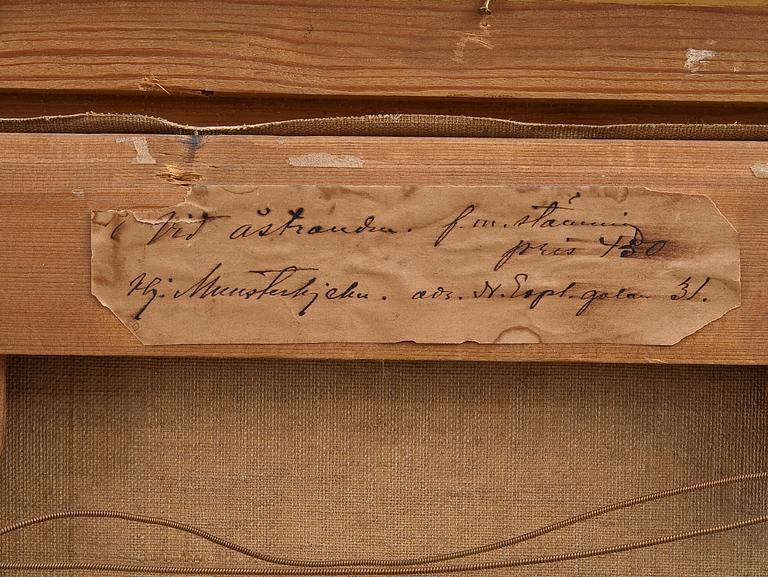 Vid åstranden. f.m. stämning
pris 450
Hj. Munsterhjelm. adr. N. Espl. gatan 31.